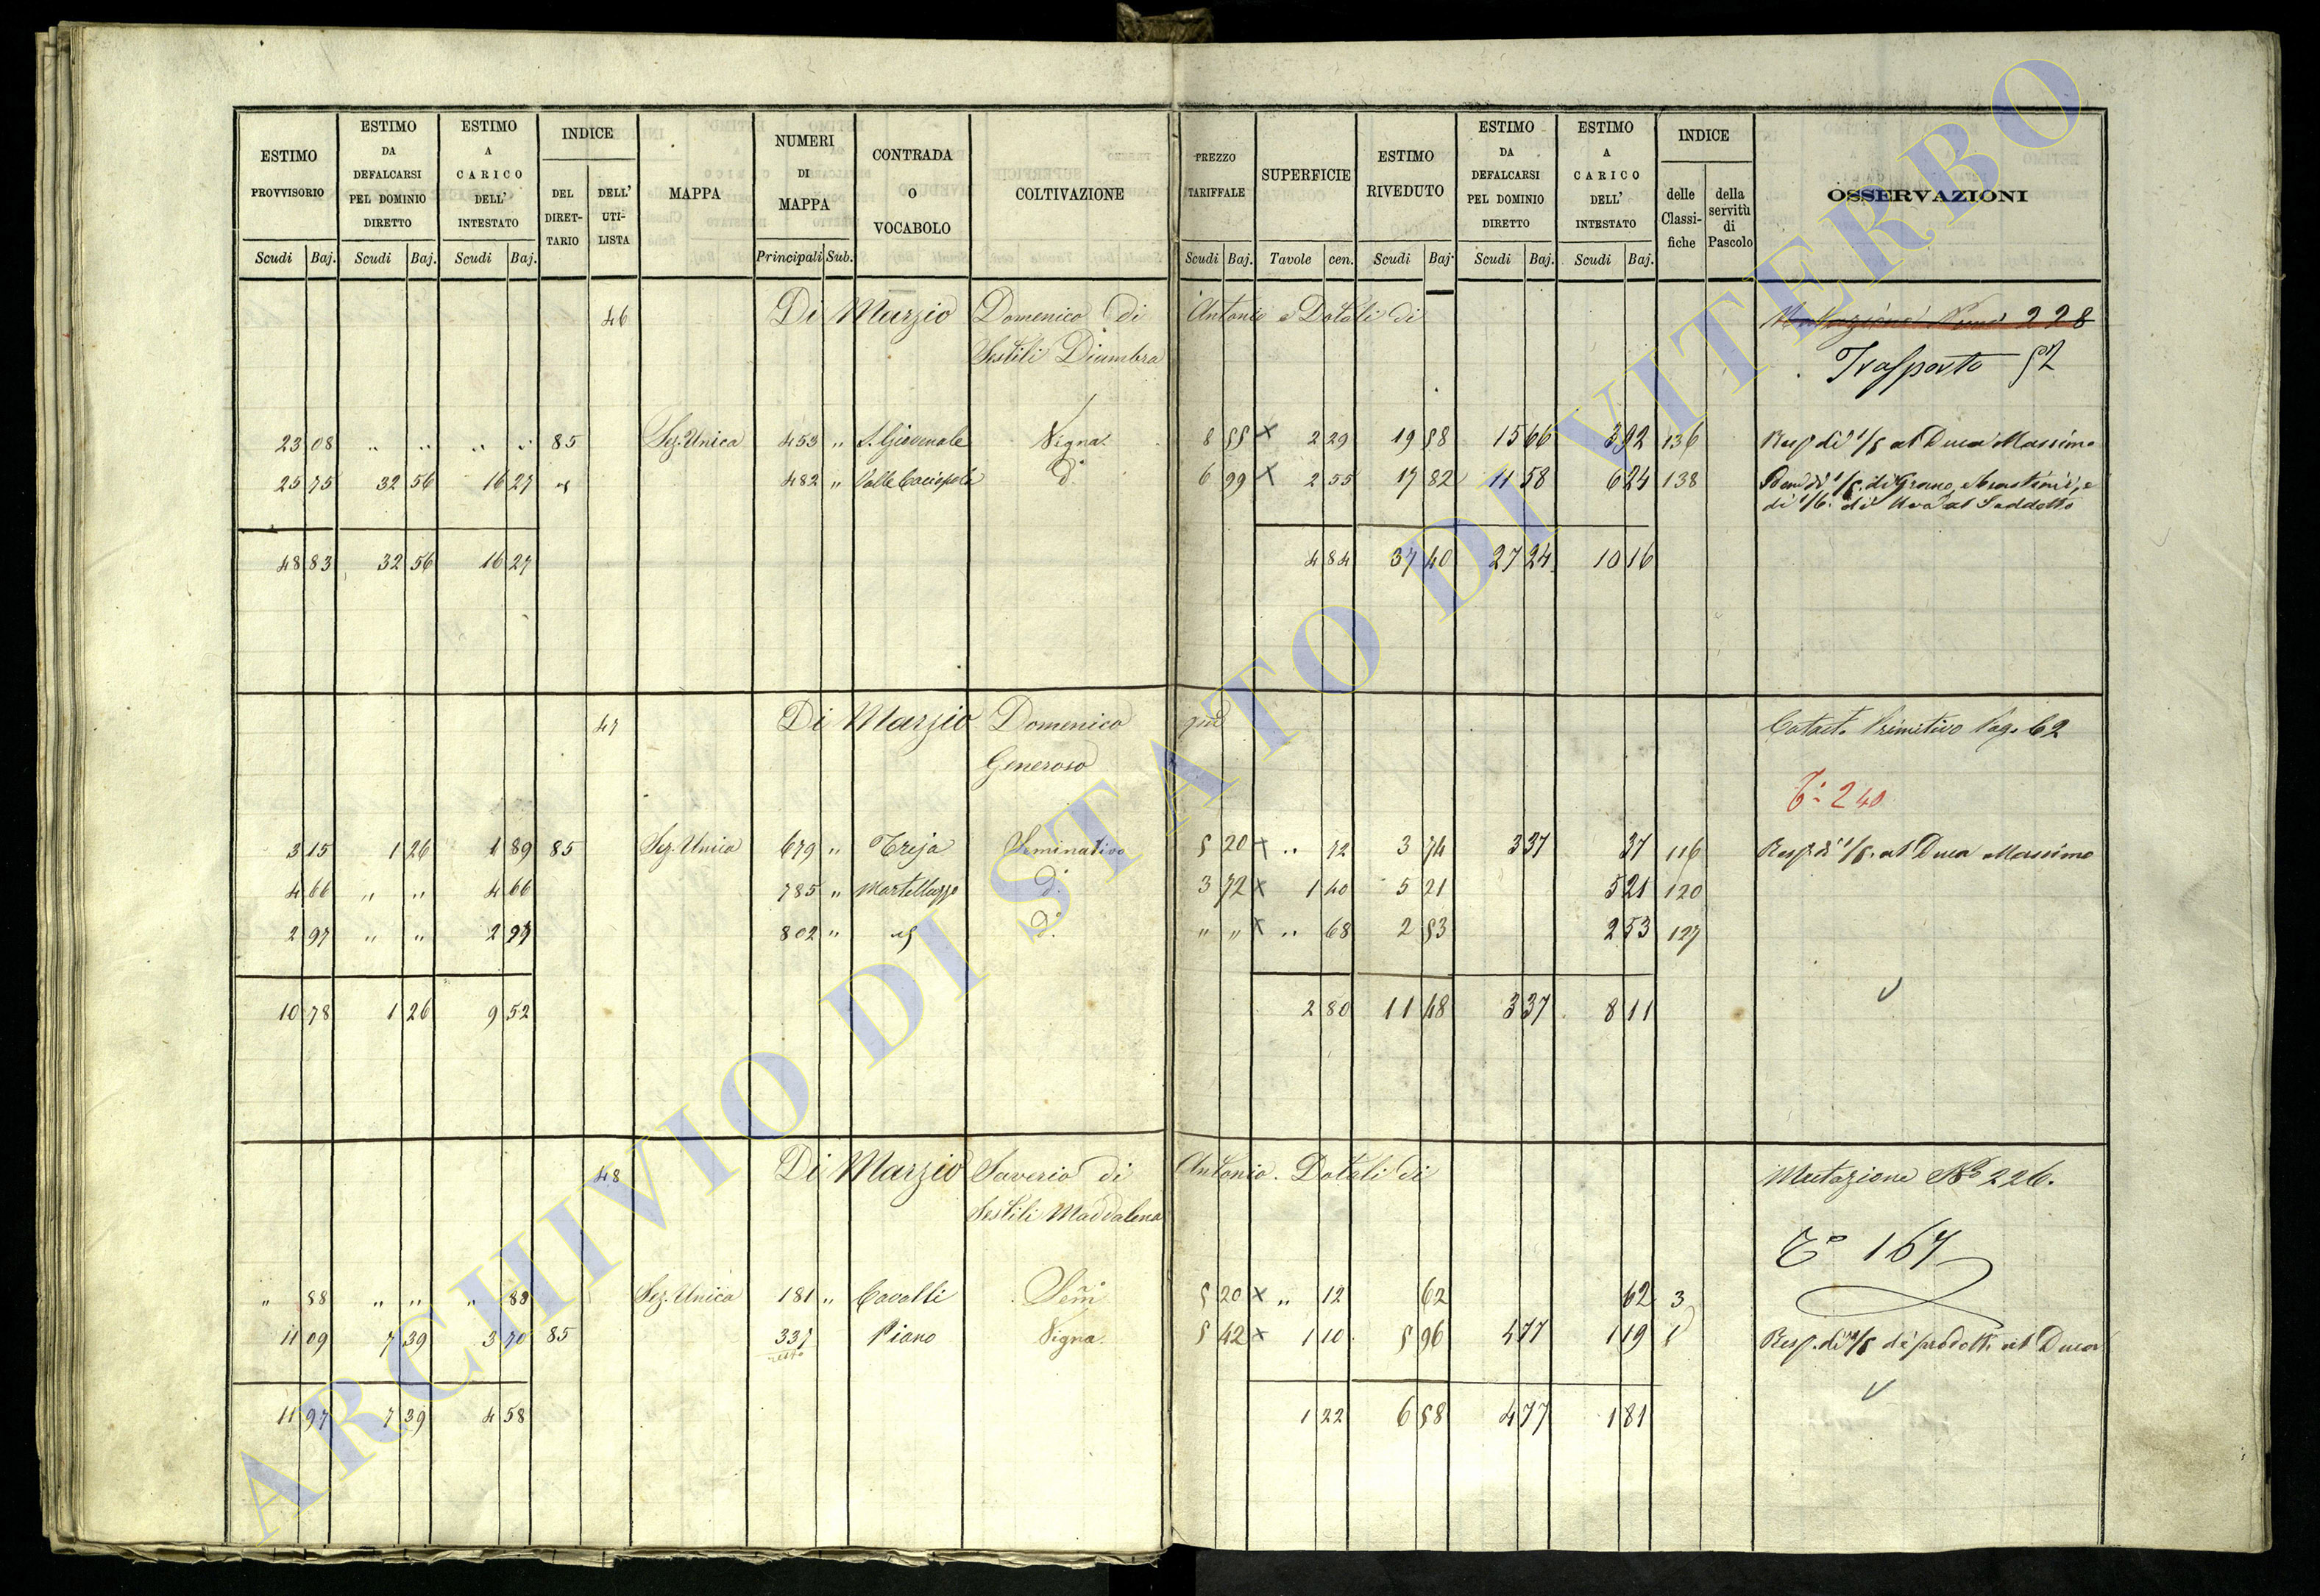 ESTIMO PROVVISORIO
ESTIMO DA DEFALCARSI PEL DOMINIO DIRETTO
ESTIMO A CARICO DELL' INTESTATO
INDICE
DEL DIRET- TARIO
DELL' UTI- LISTA
MAPPA
NUMERI DI MAPPA
CONTRADA O VOCABOLO
COLTIVAZIONE
PREZZO TARIFFALE
SUPERFICIE
ESTIMO RIVEDUTO
ESTIMO DA DEFALCARSI PEL DOMINIO DIRETTO
ESTIMO A CARICO DELL' INTESTATO
INDICE
delle Classi- fiche
della servitù di Pascolo
OSSERVAZIONI
Scudi Baj. Scudi Baj. Scudi Baj. Principali Sub. Scudi Baj. Tavole cen. Scudi Baj. Scudi Baj. Scudi Baj.
46 Di Marzio Domenico di Antonio e Dotali di Mutazione Num 228
Sestili Diambra Trasporto 52
23 08 " " " " 85 Sez. Unica 453 " S. Giovenale Vigna 8 55 x 2 29 19 58 15 66 3 92 136 Resp. di 1/5 al Duca Massimo
25 75 32 56 16 27 482 " Valle d°. 6 99 x 2 55 17 82 11 58 6 24 138 di 1/5 di Grano
di 1/6. di Uva al Suddetto
48 83 32 56 16 27 4 84 37 40 27 24 10 16
47 Di Marzio Domenico qm Catasto Primitivo Pag. 62
Generoso
T° 240
3 15 1 26 1 89 85 Sez. Unica 679 " Treja Seminativo 5 20 x " 72 3 74 3 37 37 116 Resp. di 1/5. al Duca Massimo
4 66 " " 4 66 785 " Martellazzo d°. 3 72 x 1 40 5 21 5 21 120
2 97 " " 2 97 802 " d°. " " x " 68 2 53 2 53 127
10 78 1 26 9 52 2 80 11 48 3 37 8 11
48 Di Marzio Saverio di Antonio. Dotali di Mutazione No 226.
Sestili Maddalena
T° 167
" 88 " " " 88 Sez. Unica 181 " Cavalli Sem 5 20 x " 12 62 62 3
11 09 7 39 3 70 85 337 Piano Vigna 5 42 x 1 10 5 96 4 77 1 19 1 Resp. di 1/5 de' prodotti al Duca
resto
11 97 7 39 4 58 1 22 6 58 4 77 1 81
ARCHIVIO DI STATO DI VITERBO